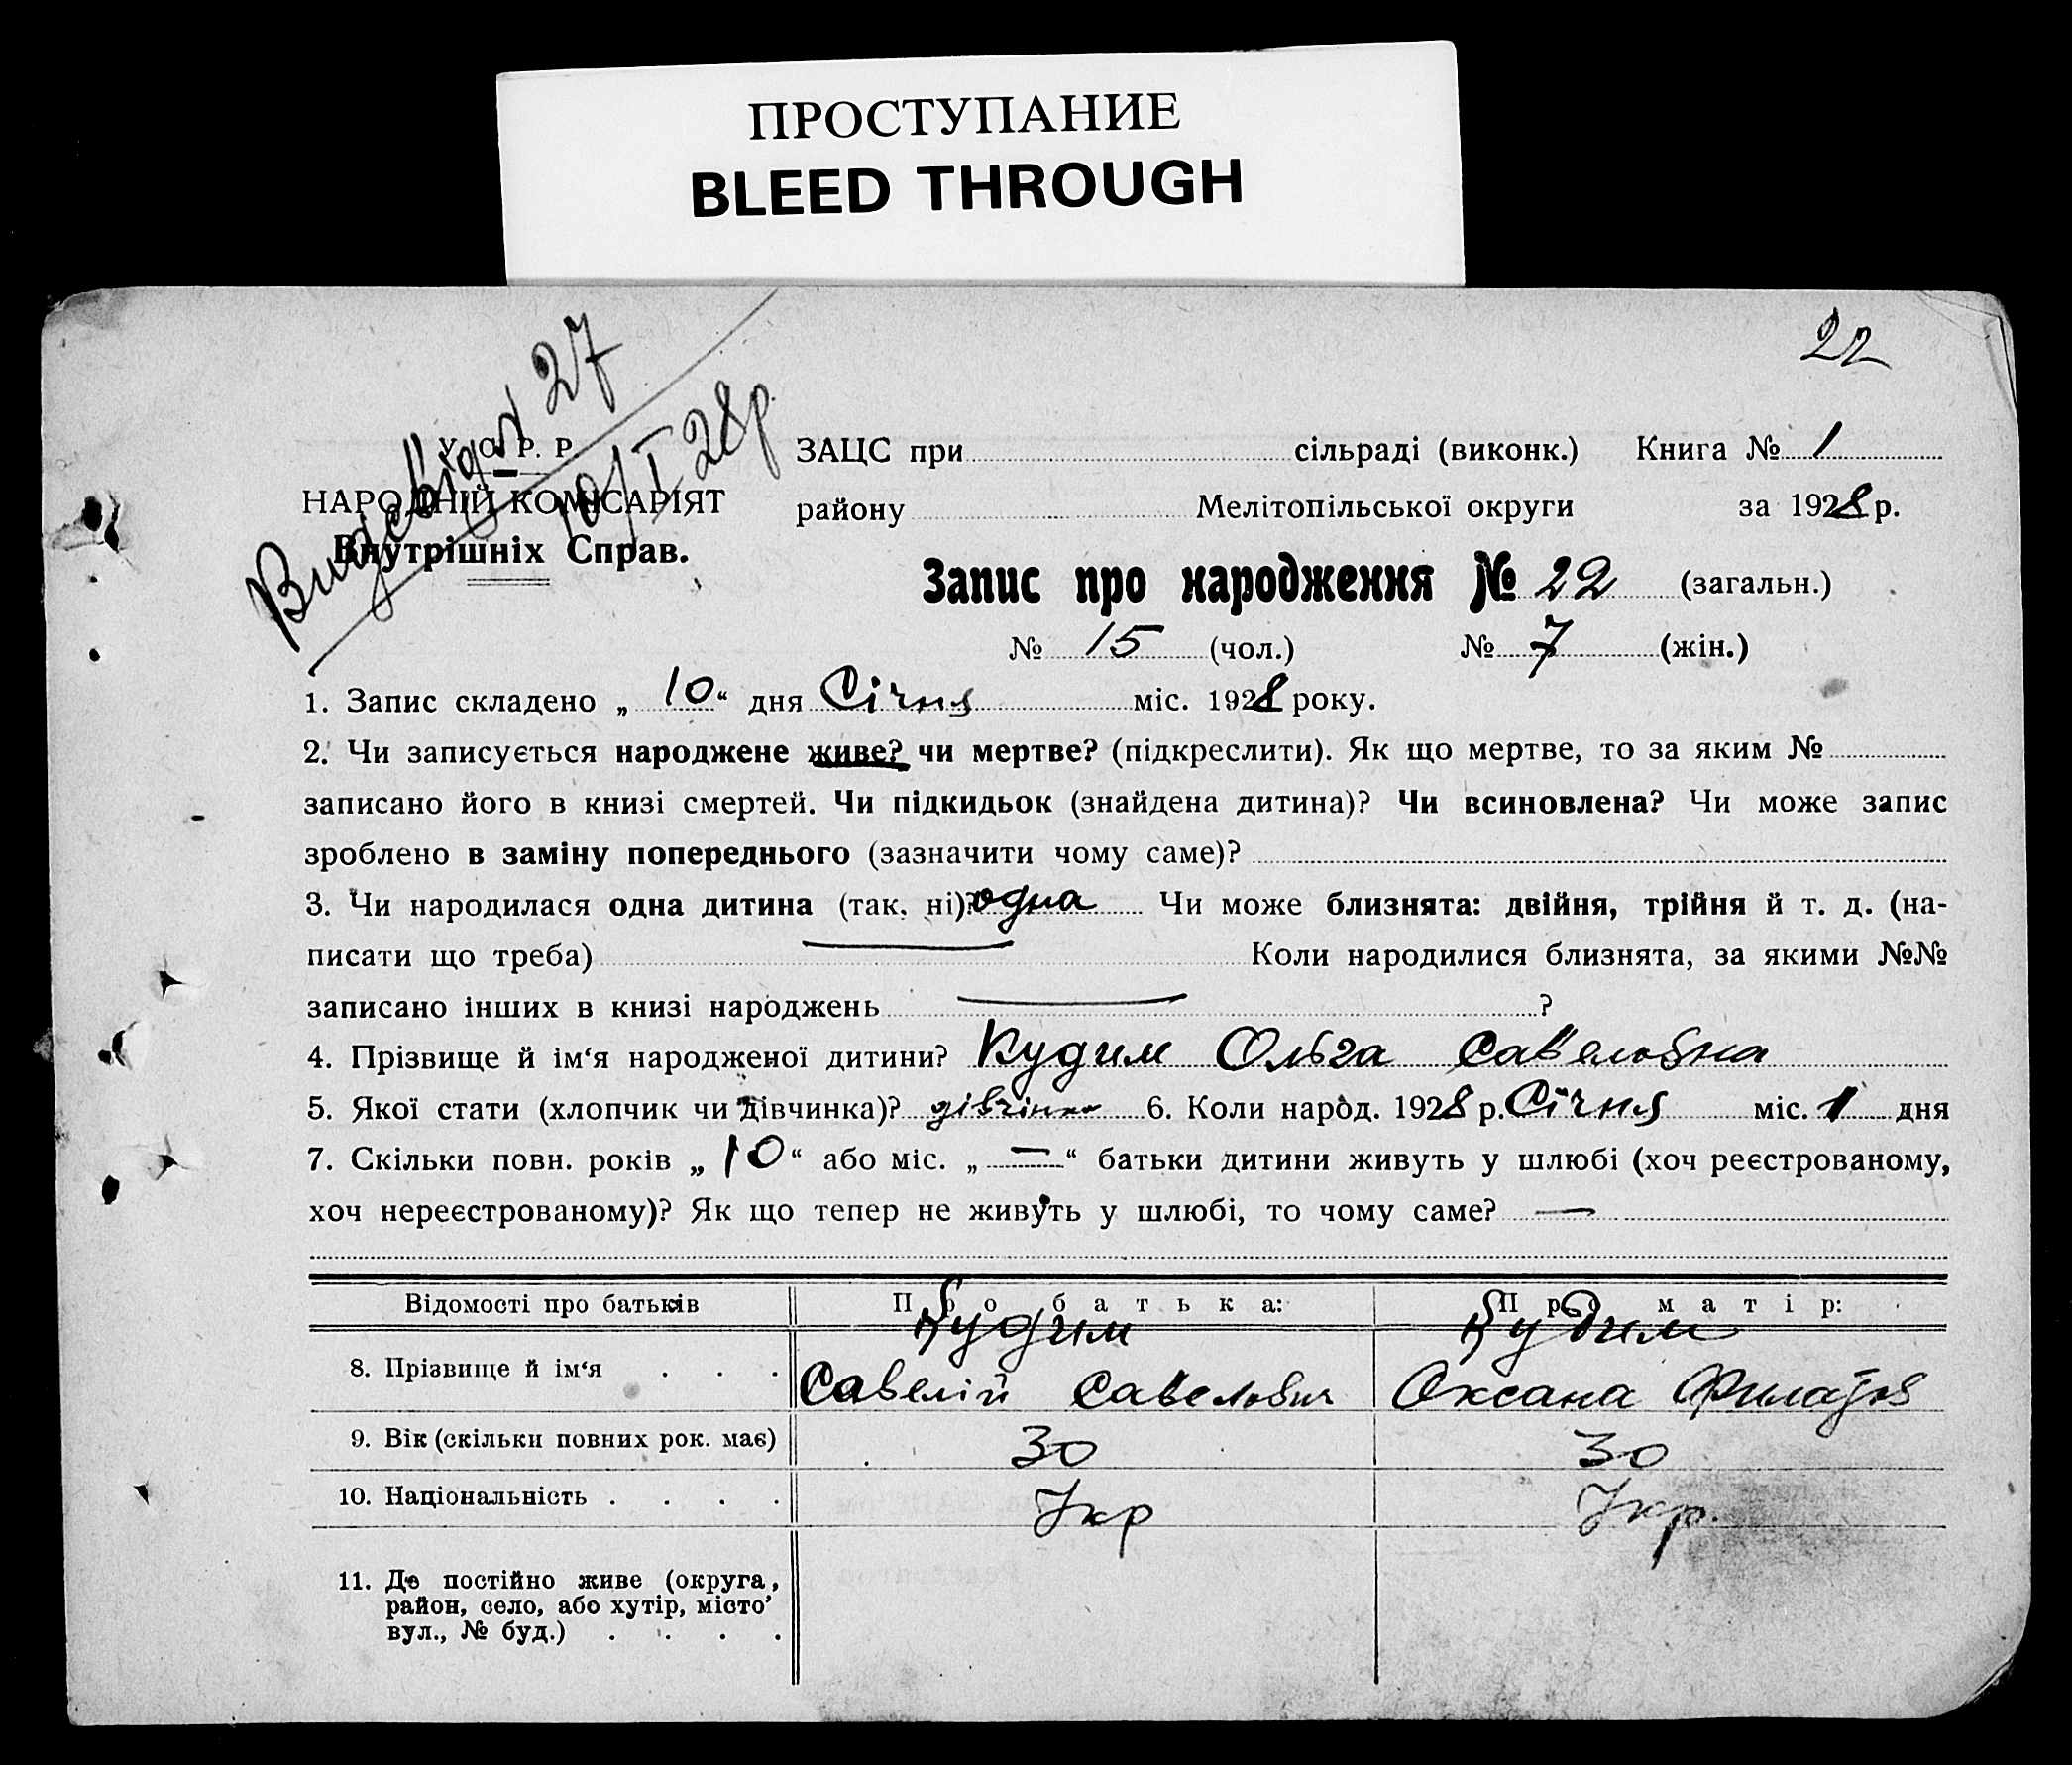 ПРОСТУПАНИЕ
BLEED THROUGH
22
27
10/I 28р.
У. С. Р. Р.
НАРОДНІЙ КОМІСАРІЯТ
Внутрішніх Справ.
ЗАЦС при сільраді (виконк.) Книга № 1
району Мелітопільської округи за 1928 р.
Запис про народження № 22 (загальн.)
№ 15 (чол.) № 7 (жін.)
1. Запис складено „ 10 “ дня Січня міс. 1928 року.
2. Чи записується народжене живе? чи мертве? (підкреслити). Як що мертве, то за яким №
записано його в книзі смертей. Чи підкидьок (знайдена дитина)? Чи всиновлена? Чи може запис
зроблено в заміну попереднього (зазначити чому саме)?
3. Чи народилася одна дитина (так, ні)? одна Чи може близнята: двійня, трійня й т. д. (на-
писати що треба) — Коли народилися близнята, за якими №№
записано інших в книзі народжень — ?
4. Прізвище й ім‘я народженої дитини? Кудим Ольга Савеловна
5. Якої стати (хлопчик чи дівчинка)? дівчінка 6. Коли народ. 1928 р. Січня міс. 1 дня
7. Скільки повн. років „ 10 “ або міс. „ — “ батьки дитини живуть у шлюбі (хоч реєстрованому,
хоч нереєстрованому)? Як що тепер не живуть у шлюбі, то чому саме? —
Відомості про батьків Про батька: Про матір:
Кудим Кудим
8. Прізвище й ім‘я . . . Савелій Савелович Оксана
9. Вік (скільки повних рок. має) 30 30
10. Національність . . . . Укр Укр.
11. Де постійно живе (округа,
район, село, або хутір, місто’
вул., № буд.) . . . .